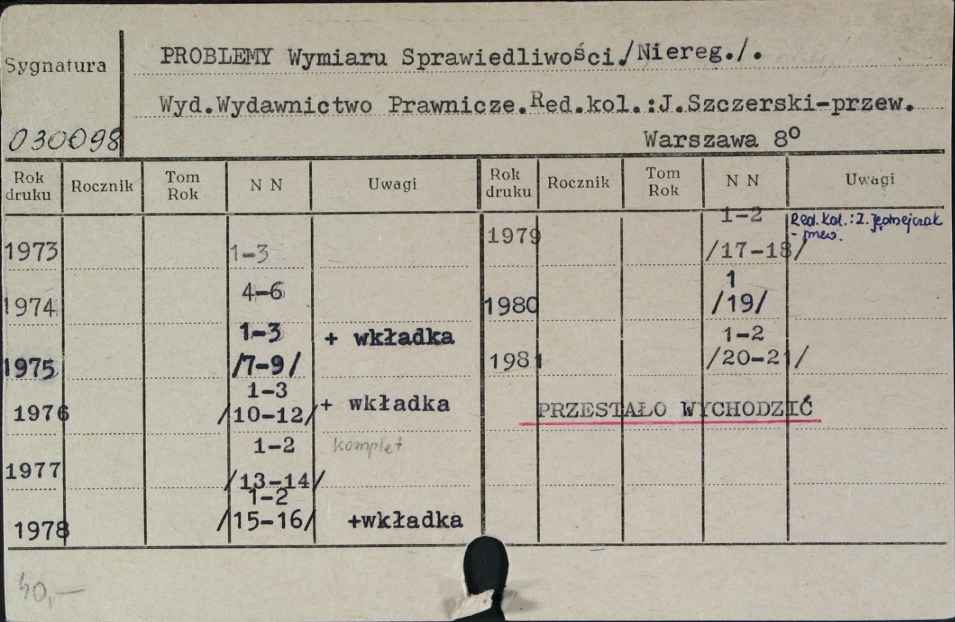 Sygnatura
PROBLEMY Wymiaru Sprawiedliwości/Niereg./.
Wyd.Wydawnictwo Prawnicze.Red.kol.:J.Szczerski-przew.
030098
Warszawa 8°
Rok druku Rocznik Tom Rok N N Uwagi Rok druku Rocznik Tom Rok N N Uwagi
1973 1-3
1974 4-6
1975 1-3 /7-9/ + wkładka
1976 1-3 /10-12/ + wkładka
1977 1-2 /13-14/ komplet
1978 1-2 /15-16/ +wkładka
1979 1-2 /17-18/ Red. kol.: Z.
1980 1 /19/
1981 1-2 /20-21/
PRZESTAŁO WYCHODZIĆ
40,—